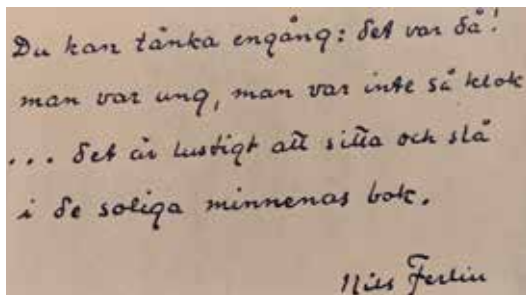 Du kan tänka engång: det var då!
man var ung, man var inte så klok
... det är lustigt att sitta och slå
i de soliga minnenas bok.
Nils Ferlin